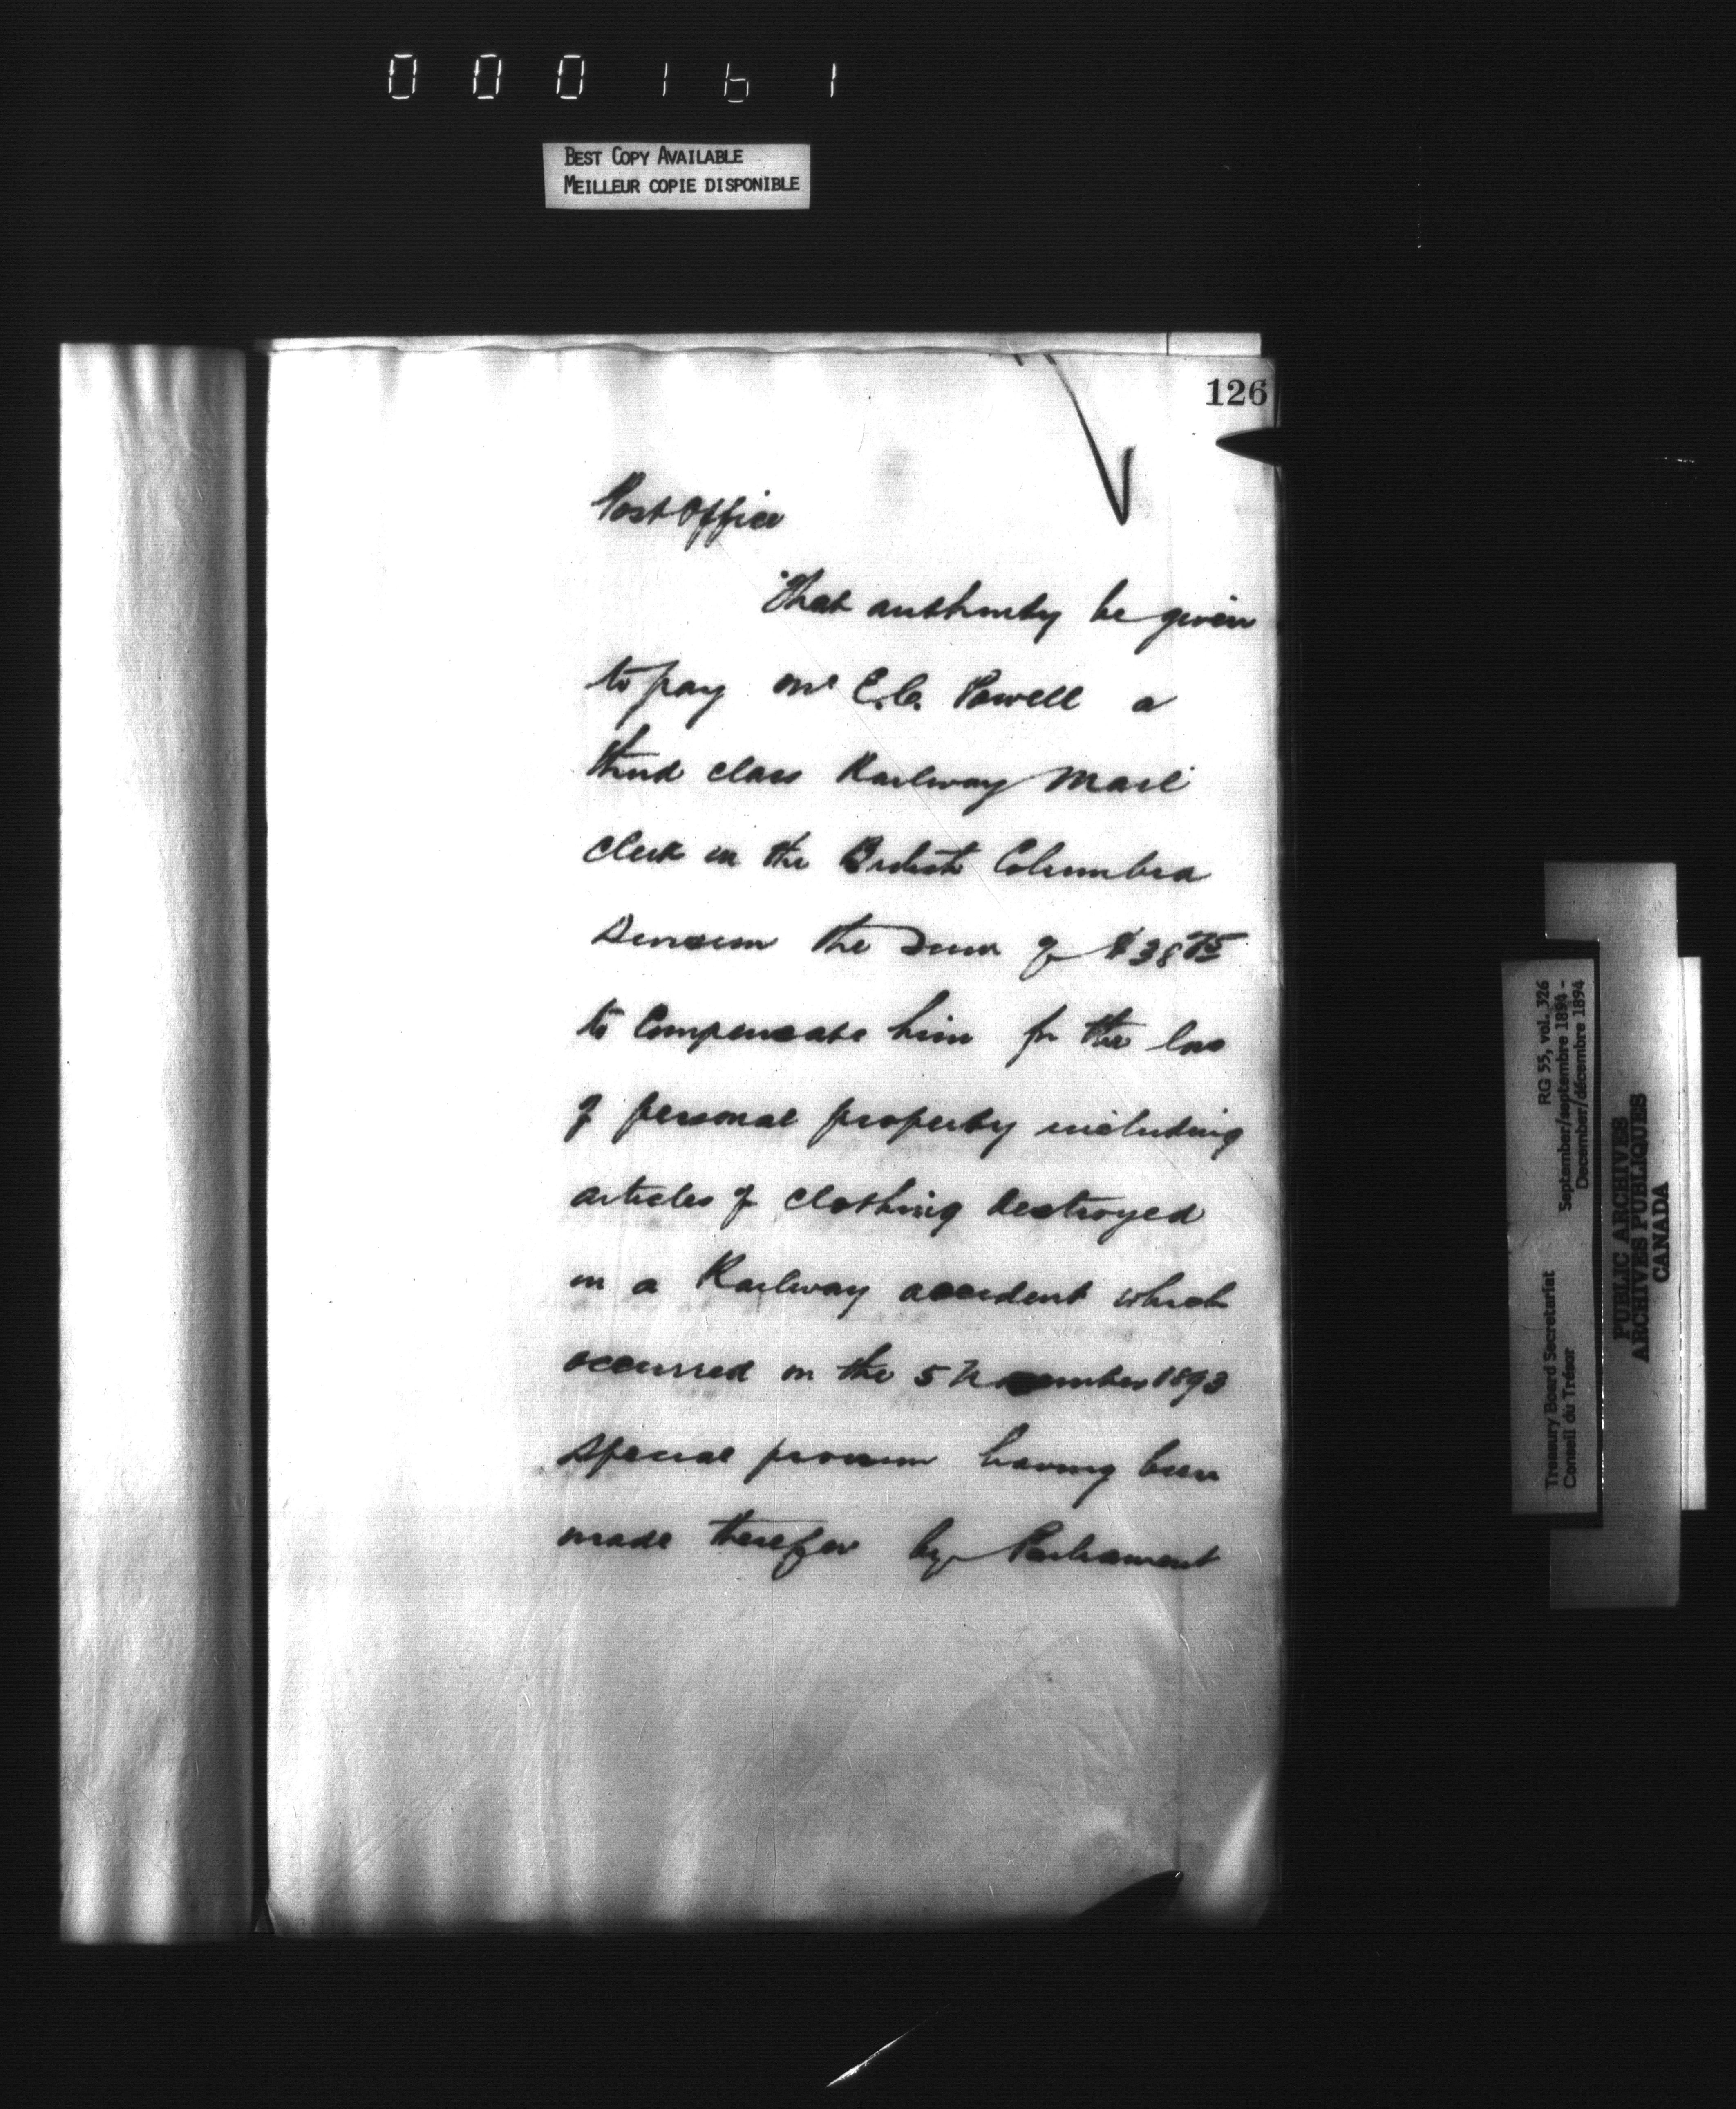 000161
BEST COPY AVAILABLE
MEILLEUR COPIE DISPONIBLE
126
Post Office
That authority be given
to pay Mr E.C. Powell a
third class Railway Mail
Clerk in the British Columbia
Division the sum of $38 75
to Compensate him for the loss
of personal property including
articles of clothing destroyed
in a Railway accident which
occurred on the 5 November 1893
special provision having been
made therefor by Parliament
Treasury Board Secretariat RG 55, vol. 326
Conseil du Trésor September/septembre 1894 -
December/décembre 1894
PUBLIC ARCHIVES
ARCHIVES PUBLIQUES
CANADA